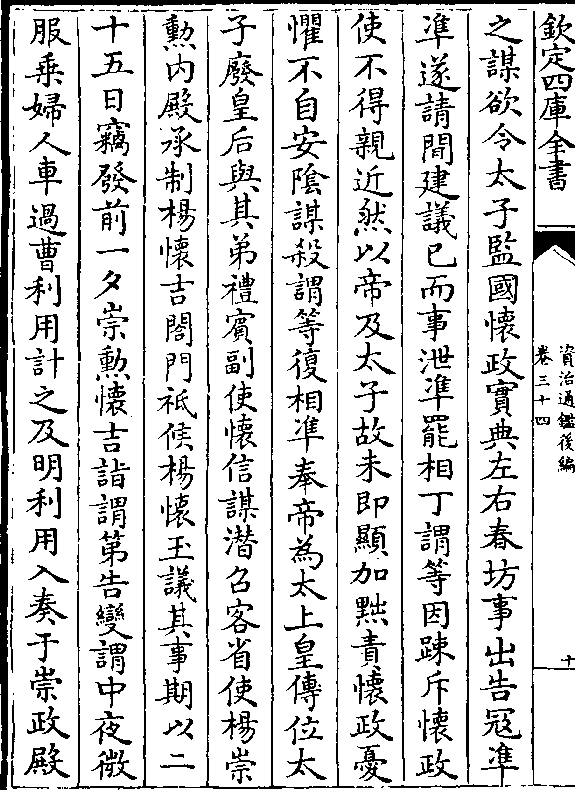 欽定四庫全書
資治通鑑後編
卷三十四
十
之謀欲令太子監國懷政實典左右春坊事出告冦凖
凖遂請間建議已而事泄凖罷相丁謂等因疎斥懷政
使不得親近然以帝及太子故未即顯加黜責懷政憂
懼不自安隂謀殺謂等復相凖奉帝為太上皇傳位太
子廢皇后與其弟禮賓副使懷信謀潜召客省使楊崇
勲内殿承制楊懷吉閤門祗候楊懷玉議其事期以二
十五日竊發前一夕崇勲懷吉詣謂第告變謂中夜微
服乗婦人車過曹利用計之及明利用入奏于崇政殿